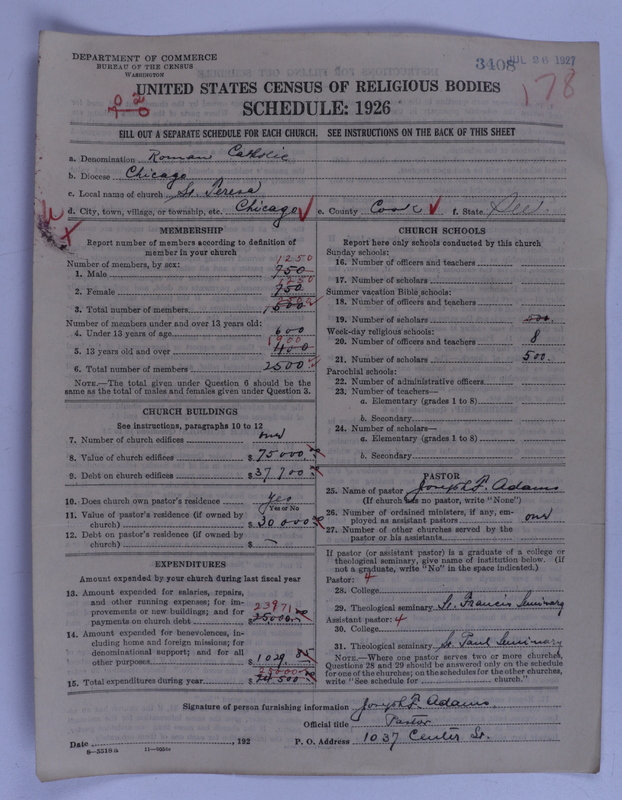 DEPARTMENT OF COMMERCE
BUREAU OF THE CENSUS
WASHINGTON
3408 JUL 26 1927
178
UNITED STATES CENSUS OF RELIGIOUS BODIES
SCHEDULE: 1926
FILL OUT A SEPARATE SCHEDULE FOR EACH CHURCH. SEE INSTRUCTIONS ON THE BACK OF THIS SHEET
a. Denomination Roman Catholic
b. Diocese Chicago
c. Local name of church St. Teresa
d. City, town, village, or township, etc. Chicago e. County Cook f. State Ill
MEMBERSHIP
Report number of members according to definition of
member in your church
Number of members, by sex:
1250
1. Male 750
1250
2. Female 750
2500
3. Total number of members 1,500
Number of members under and over 13 years old:
4. Under 13 years of age 600
1900
5. 13 years old and over 400
6. Total number of members 2500
NOTE.—The total given under Question 6 should be
same as the total of males and females given under Question 3.
CHURCH BUILDINGS
See instructions, paragraphs 10 to 12
7. Number of church edifices one
8. Value of church edifices $ 75000.00
9. Debt on church edifices $ 37700
10. Does church own pastor's residence yes
Yes or No
11. Value of pastor's residence (if owned by
church) $ 30000
12. Debt on pastor's residence (if owned by
church) $ —
EXPENDITURES
Amount expended by your church during last fiscal year
13. Amount expended for salaries, repairs,
and other running expenses; for im-
provements or new buildings; and for
23971
payments on church debt $ 25000
14. Amount expended for benevolences, in-
cluding home and foreign missions; for
denominational support; and for all
other purposes $ 1029.85
25000
15. Total expenditures during year $ 24500
CHURCH SCHOOLS
Report here only schools conducted by this church
Sunday schools:
16. Number of officers and teachers
17. Number of scholars
Summer vacation Bible schools:
18. Number of officers and teachers
19. Number of scholars 500.
Week-day religious schools:
20. Number of officers and teachers 8
21. Number of scholars 500.
Parochial schools:
22. Number of administrative officers
23. Number of teachers—
a. Elementary (grades 1 to 8)
b. Secondary
24. Number of scholars—
a. Elementary (grades 1 to 8)
b. Secondary
PASTOR
25. Name of pastor Joseph F. Adams
(If church has no pastor, write "None")
26. Number of ordained ministers, if any, em-
ployed as assistant pastors one
27. Number of other churches served by the
pastor or his assistants
If pastor (or assistant pastor) is a graduate of a college or
theological seminary, give name of institution below. (If
not a graduate, write "No" in the space indicated.)
Pastor: 4
28. College
29. Theological seminary St. Francis Seminary
Assistant pastor: 4
30. College
31. Theological seminary St. Paul Seminary
NOTE.—Where one pastor serves two or more churches,
Questions 28 and 29 should be answered only on the schedule
for one of the churches; on the schedules for the other churches,
write "See schedule for church."
Signature of person furnishing information Joseph F. Adams
Official title Pastor
Date , 192 P. O. Address 1037 Center St.
8—5518a 11—9056a